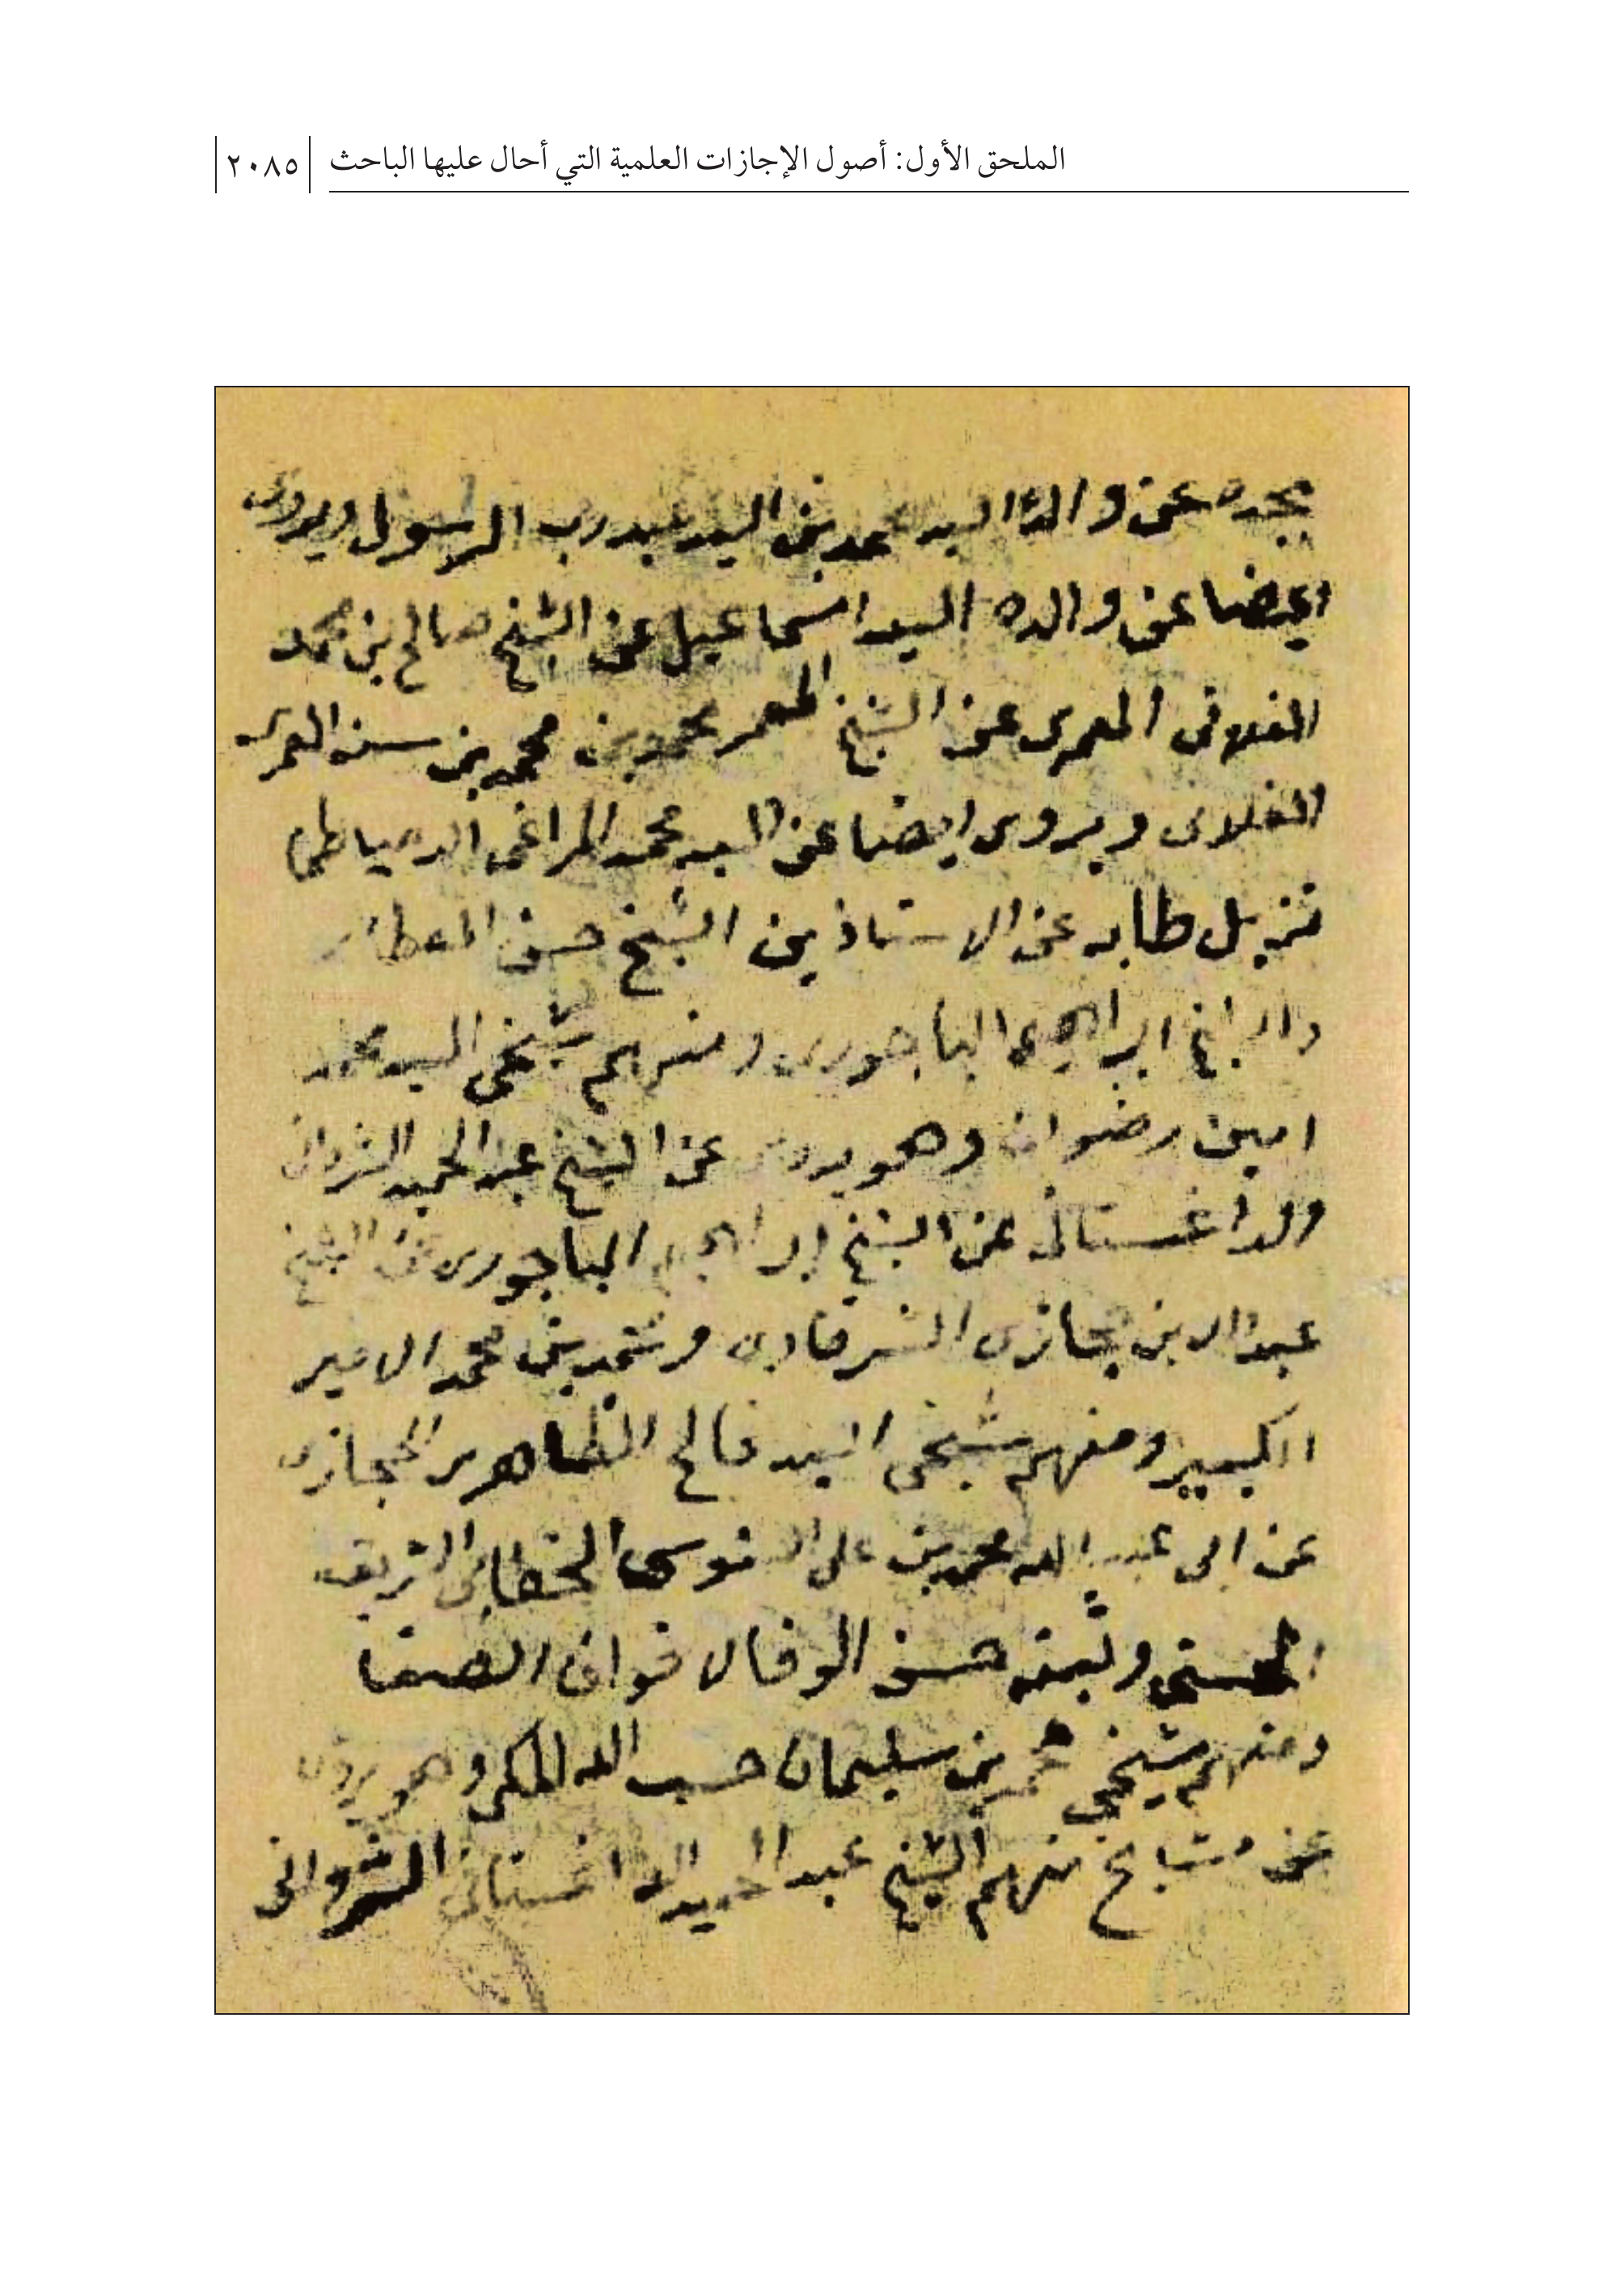 الملحق الأول: أصول الإجازات العلمية التي أحال عليها الباحث ٢٠٨٥
بجده عن والدنا السيد محمد بن السيد عبد رب الرسول ويروى
ايضا عن والده السيد اسماعيل عن الشيخ صالح بن محمد
الفلانى العمرى عن الشيخ المعمر محمد بن محمد بن سنه العمرى
الفلانى ويروى ايضا عن السيد محمد المراغى الدمياطى
نزيل طابه عن الاستاذين الشيخ حسن العطار
والشيخ ابراهيم الباجورى ومنهم شيخى السيد محمد
امين رضوان وهو يروى عن الشيخ عبد الحميد الشروانى
والداغستانى عن الشيخ ابراهيم الباجورى عن الشيخ
عبد الله بن حجازى الشرقاوى ومحمد بن محمد الامير
الكبير ومنهم شيخى السيد فالح الظاهرى الحجازى
عن ابى عبد الله محمد بن على السنوسى الخطابى الشريف
الحسنى وثبته حسن الوفا لاخوان الصفا
ومنهم شيخى محمد بن سليمان حسب الله المكى وهو يروى
عن مشايخ منهم الشيخ عبد الحميد الداغستانى الشروانى